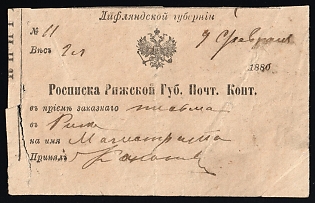 Лифляндской губерніи
№ 11
9 Февраля
Вѣсъ 2 л
1880
Росписка Рижской Губ. Почт. Конт.
въ пріемѣ заказнаго письма
въ Ригу
на имя Магистрата
Принялъ